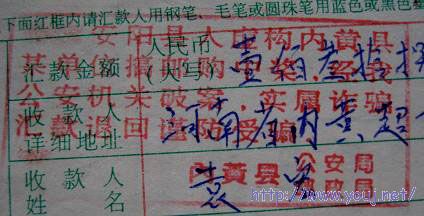 下面红框内请汇款人用钢笔、毛笔或圆珠笔用蓝色或黑色
安阳县人 构内黄县
汇款金额 人民币 (大写) 壹佰叁拾
某单位搞邮购
公安机关破案,实属诈骗
汇款人 详细地址 河南省内黄
汇款退回谨防受骗
内黄县公安局
收款人 姓名 袁
http://www.youj.net/